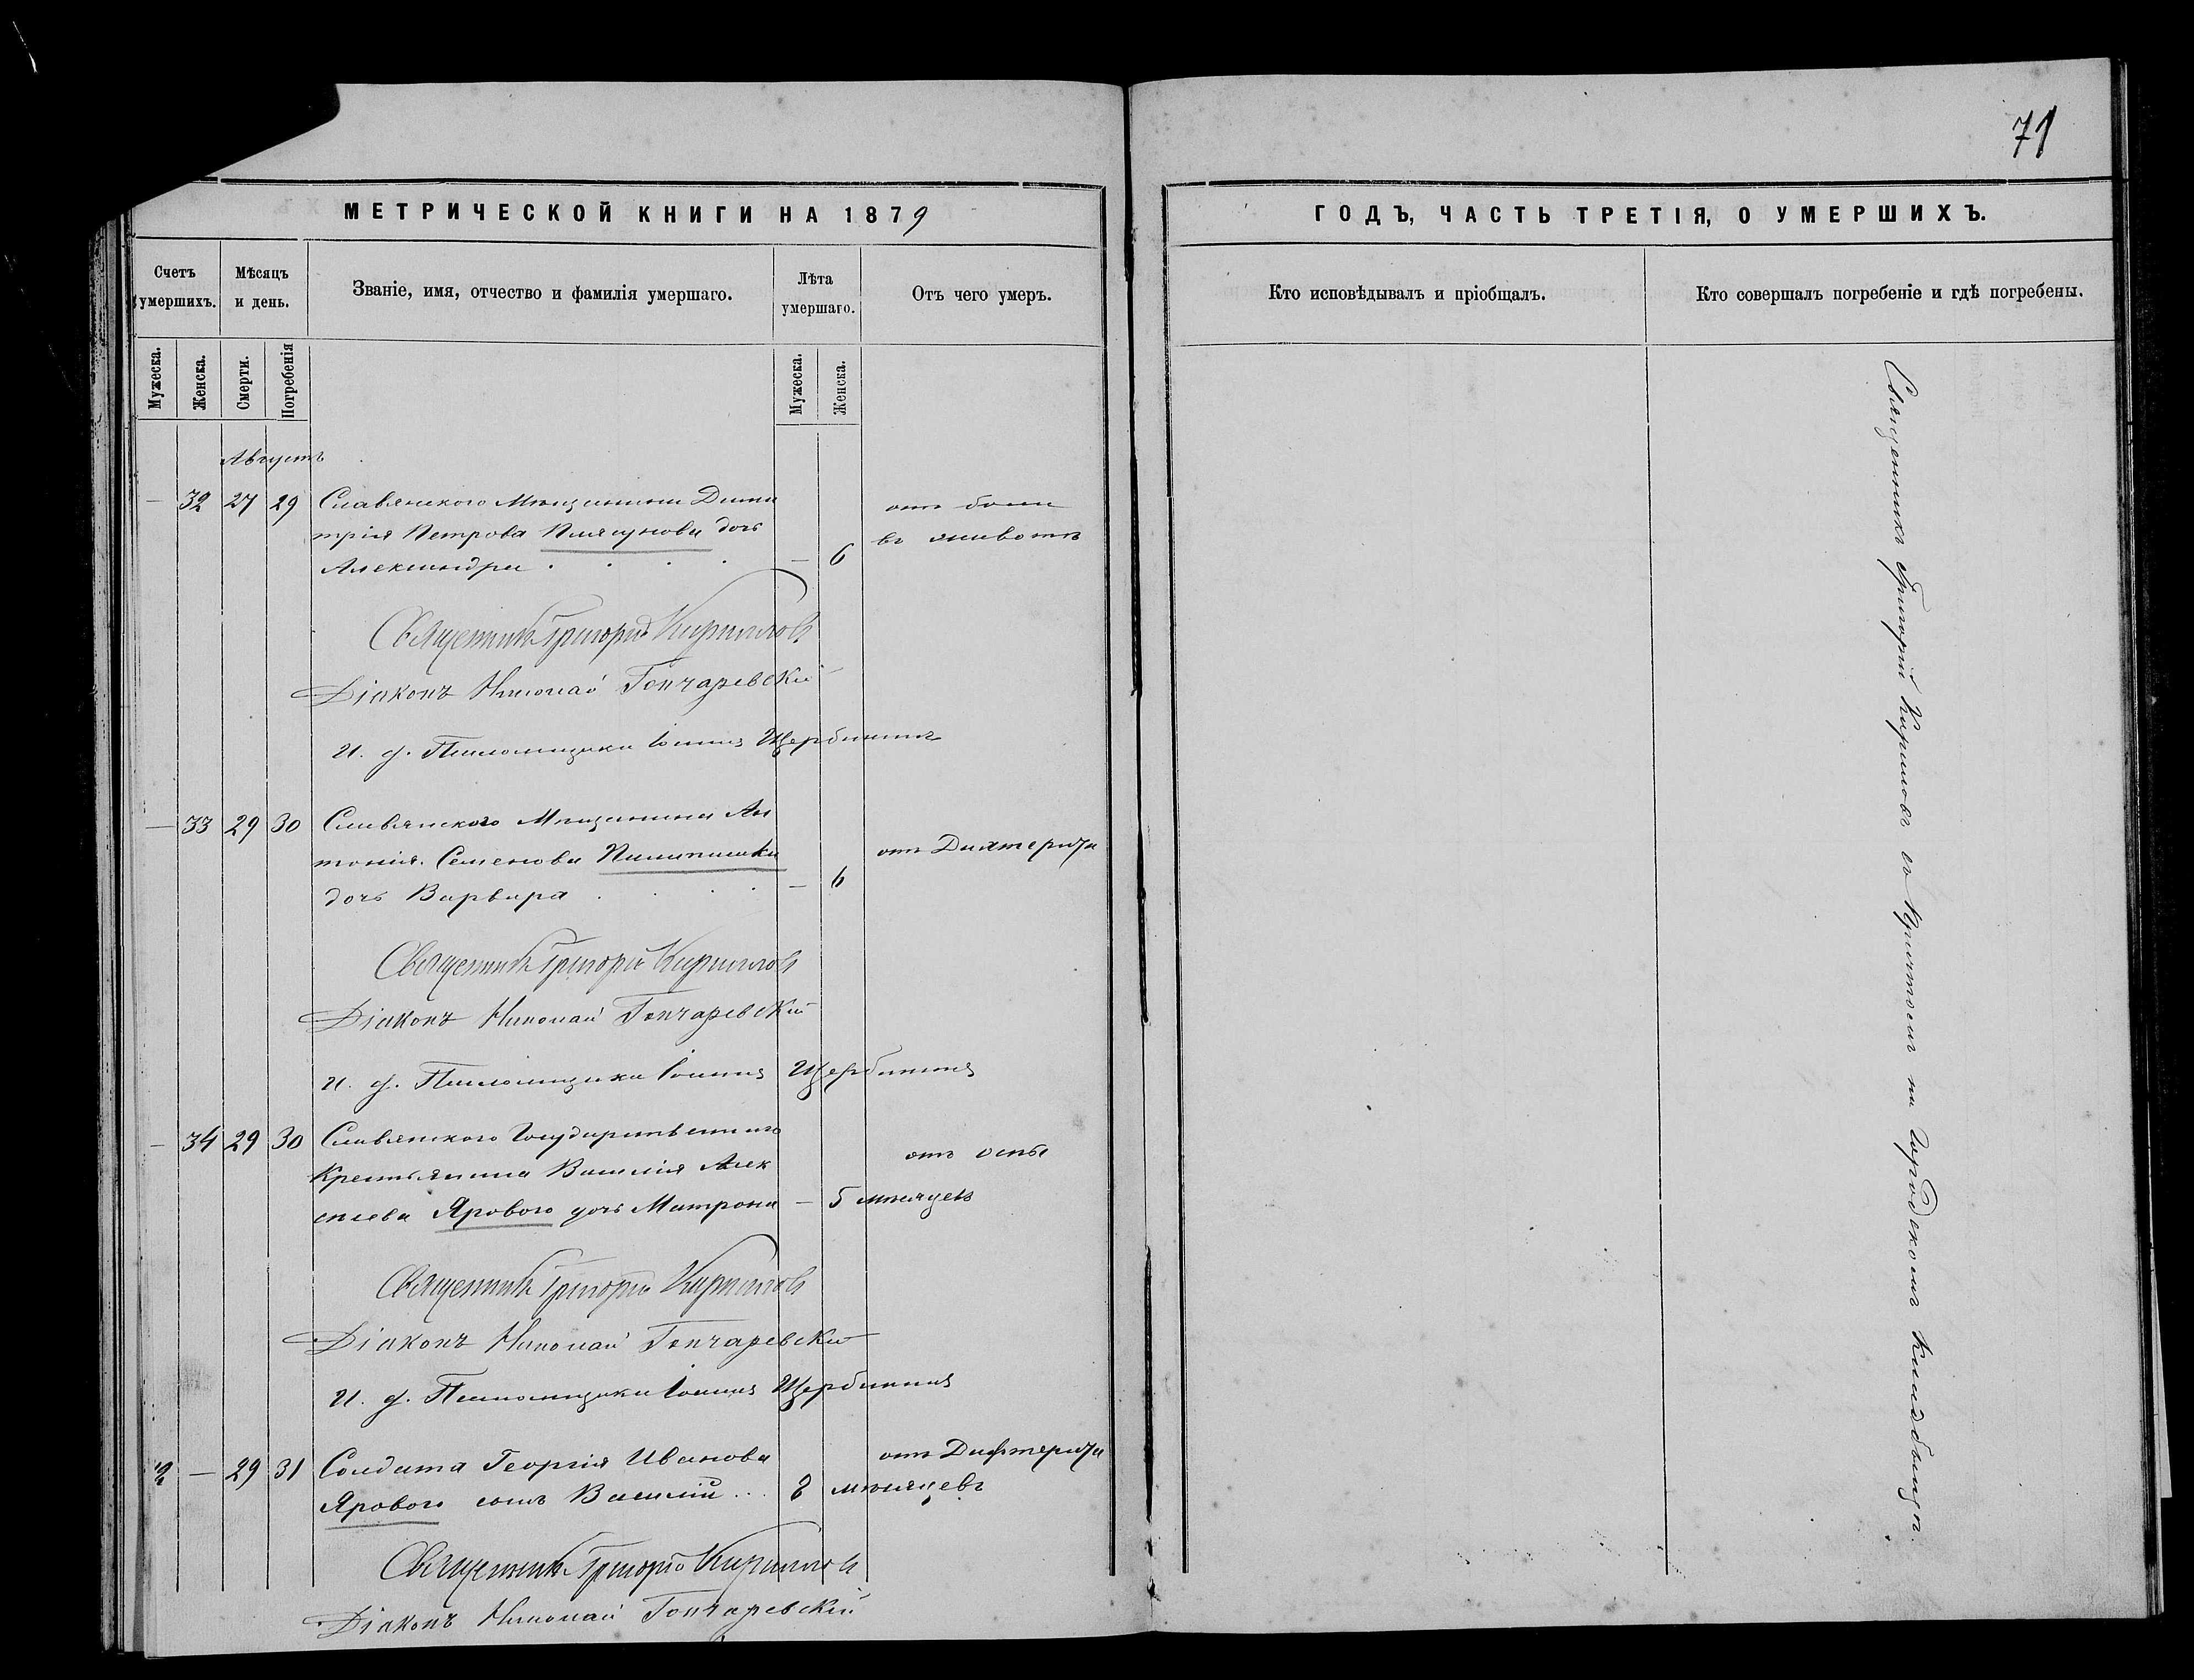 71
МЕТРИЧЕСКОЙ КНИГИ НА 1879
ГОДЪ, ЧАСТЬ ТРЕТІЯ, О УМЕРШИХЪ.
Счетъ умершихъ.
Мѣсяцъ и день.
Званіе, имя, отчество и фамилія умершаго.
Лѣта умершаго.
Отъ чего умеръ.
Кто исповѣдывалъ и пріобщалъ.
Кто совершалъ погребеніе и гдѣ погребены.
Мужеска.
Женска.
Смерти.
Погребенія
Мужеска.
Женска.
Августъ
— 32 27 29 Славянскаго Мѣщанина Дими
трія Петрова Плясунова дочь
Александра . . . . — 6
отъ боли
въ животѣ
Священникъ Григорій Кирилловъ
Діаконъ Николай Гончаревскій
И. д. Псаломщика Іоаннъ Щербининъ
— 33 29 30 Славянского Мѣщанина Ан
тонія Семенова
дочь Варвара . . . — 6
отъ Дифтерита
Священникъ Григорій Кирилловъ
Діаконъ Николай Гончаревскій
И. д. Псаломщика Іоаннъ Щербининъ
— 34 29 30 Славянского Государственнаго
Крестьянина Василія Алек
сѣева Ярового дочь Матрона — 5 мѣсяцевъ
отъ оспы
Священникъ Григорій Кирилловъ
Діаконъ Николай Гончаревскій
И. д. Псаломщика Іоаннъ Щербининъ
— 29 31 Солдата Георгія Иванова
Ярового сынъ Василій ... 8 мѣсяцевъ
отъ Дифтерита
Священникъ Григорій Кирилловъ
Діаконъ Николай Гончаревскій
Священникъ Григорій Кирилловъ съ Причтомъ на Городскомъ кладбищѣ.